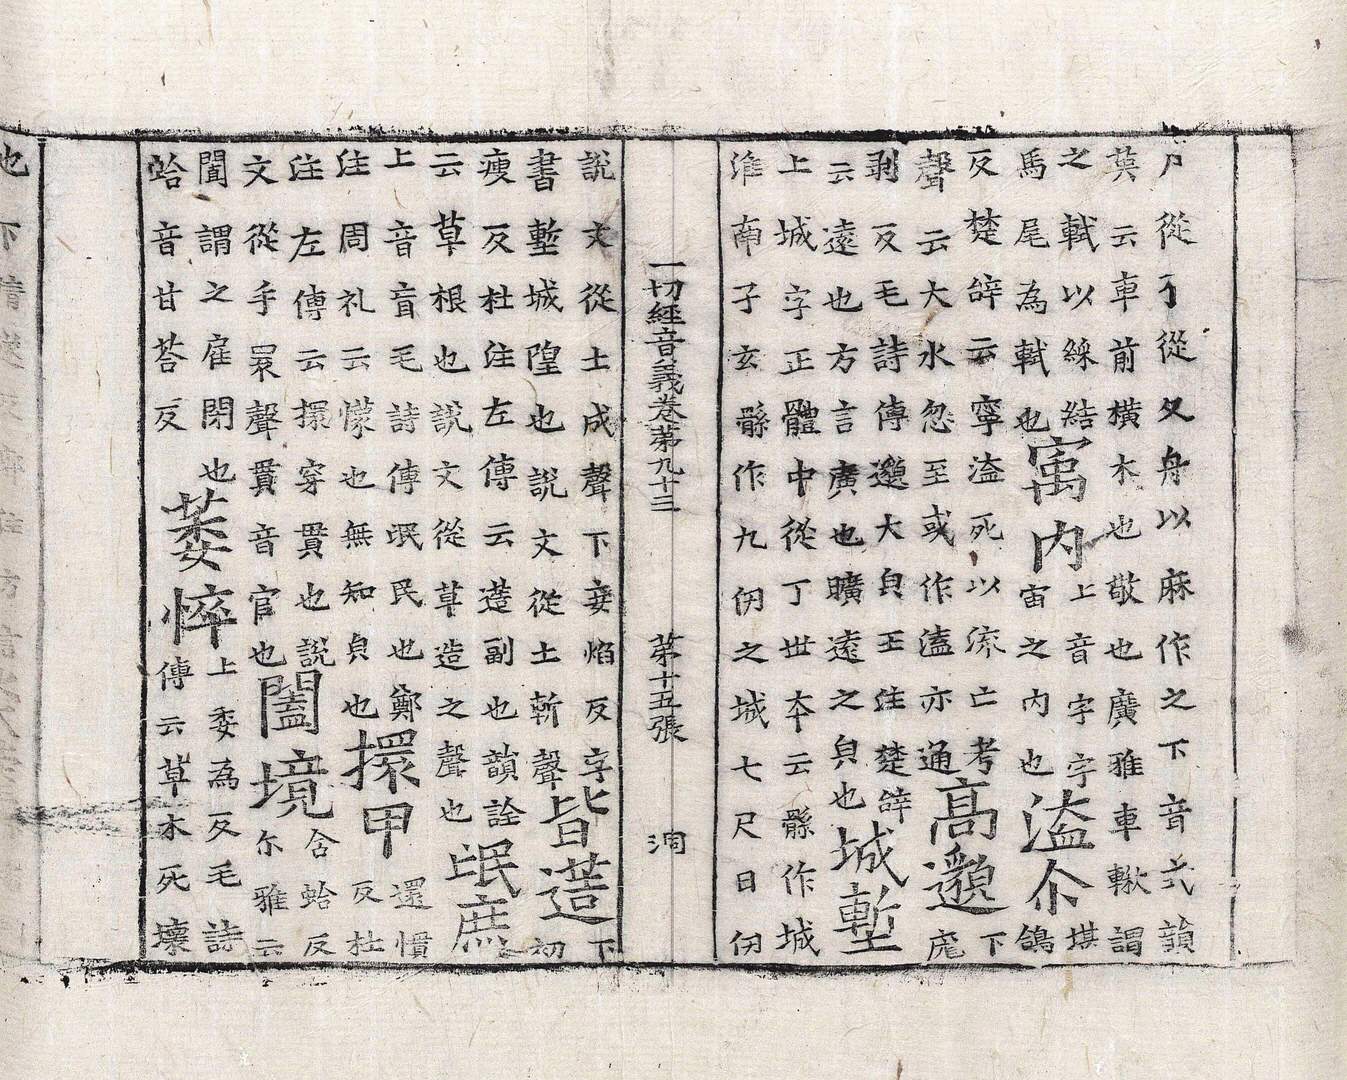 尸從彳從夂舟以麻作之下音弋韻
英云車前橫木也敬也廣雅車楸謂
之軾以綵結
馬尾為軾也寓内上音字字
宙之内也溘尒堪
鴿
反楚辭云寧溘死以流亡考
聲云大水忽至或作溘亦通高邈下
厖
剥反毛詩傳邈大皃王注楚辭
云遠也方言廣也曠遠之皃也城塹
上城字正體中從丁世本云鯀作城
淮南子玄鯀作九仞之城七尺曰仞
一切經音義卷第九十三 第十五張 洞
說文從土成聲下妾焰反字
書塹城隍也說文從土斬聲皆簉下
初
瘦反杜注左傳云簉副也韻詮
云草根也說文從草造之聲也氓庶
上音盲毛詩傳氓民也鄭
注周礼云懞也無知皃也擐甲還慣
反杜
注左傳云擐穿貫也說
文從手睘聲貫音官也闔境含蛤反
尒雅云
闔謂之扉閉也
蛤音甘荅反萎悴上委為反毛詩
傳云草木死壞